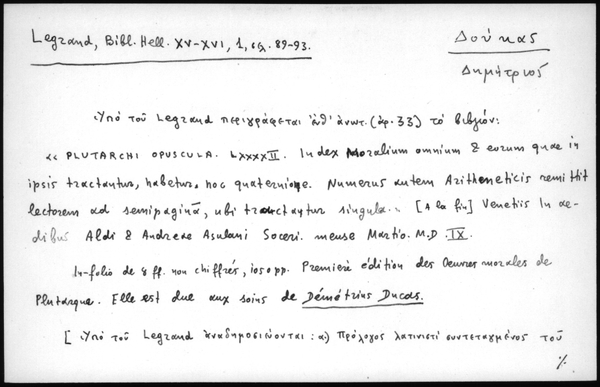 Legrand, Bibl. Hell. XV-XVI, 1, σς. 89-93.
Δούκας
Δημήτριος
Ὑπό τοῦ Legrand περιγράφεται ἐνθ' ἀνωτ. (ἀρ. 33) τό βιβλίον:
« PLUTARCHI OPUSCULA. LXXXXII. Index Moralium omnium & eorum quae in
ipsis tractantur, habetur, hoc quaternione. Numerus autem Arithmeticis remittit
lectorem ad semipaginā, ubi tractantur singula. [A la fin] Venetiis In ae-
dibus Aldi & Andreae Asulani Soceri. mense Martio. M.D.IX.
In-folio de 8 ff. non chiffrés, 1050 pp. Première édition des Oeuvres morales de
Plutarque. Elle est due aux soins de Démétrius Ducas.
[Ὑπό τοῦ Legrand ἀναδημοσιεύονται: α) Πρόλογος λατινιστί συντεταγμένος τοῦ
./.